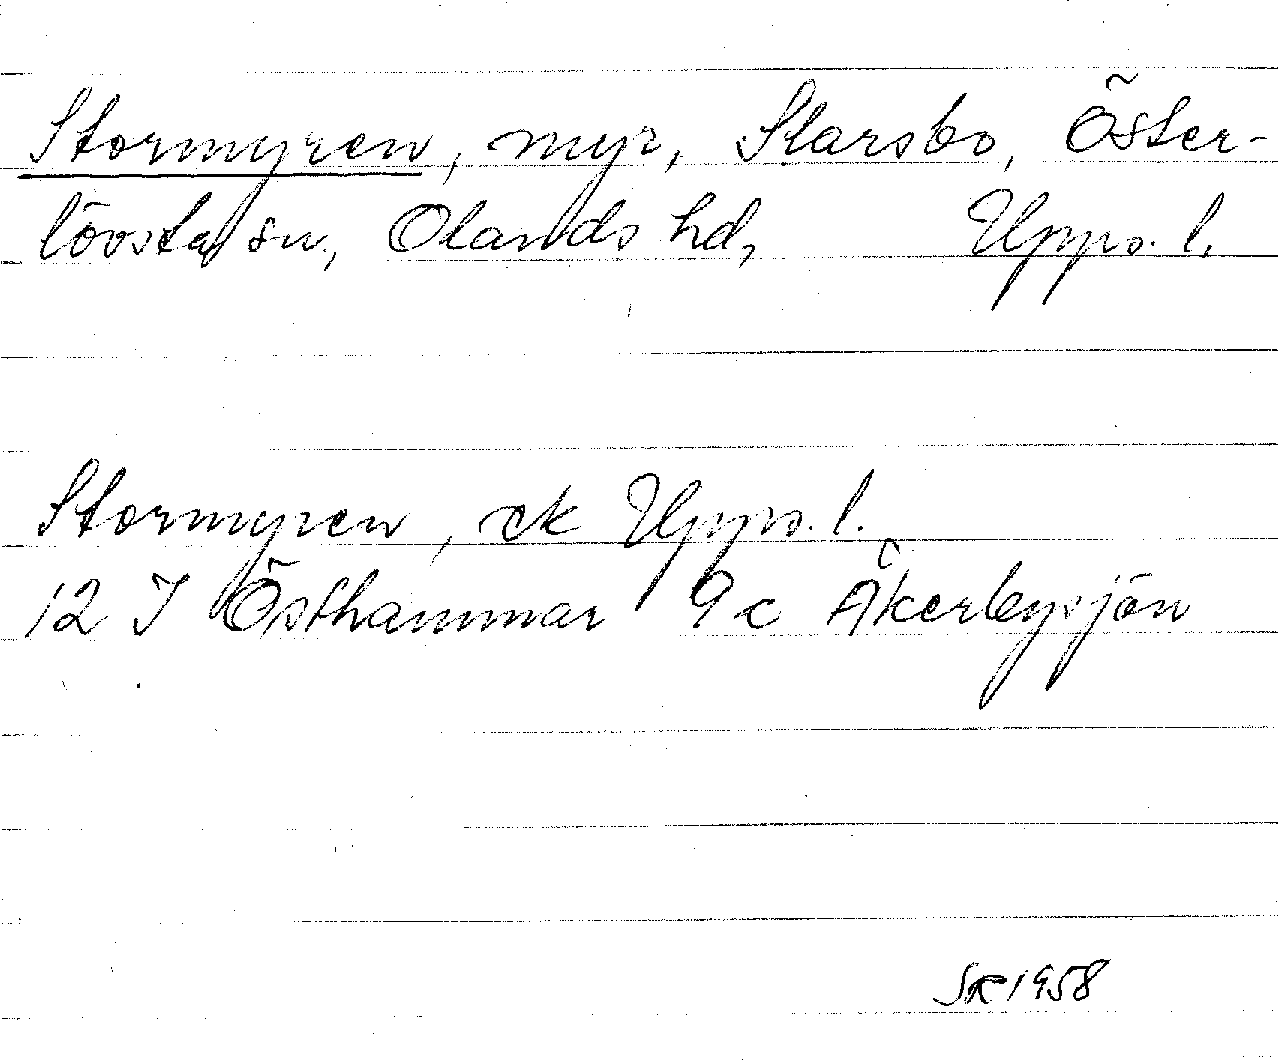 Stormyren, myr, Slarsbo, Öster-
lövsta sn, Olands hd, Upps. l.
Stormyren, ek Upps. l.
12 I Östhammar 9 c Åkerbysjön
SR 1958